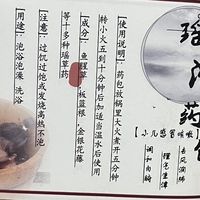 瑶浴药包
【小儿感冒咳嗽
去风润肺
理气生津
调和肉腑
【使用说明】：药包放锅里大火煮开五分钟
转小火五到十分钟后加适当温水后使用
【成分】：鱼腥草，板蓝根，金银花藤
等十多种瑶草药
【注意】：过饥过饱或发烧高热不泡
【用途】：泡浴 泡澡 洗浴